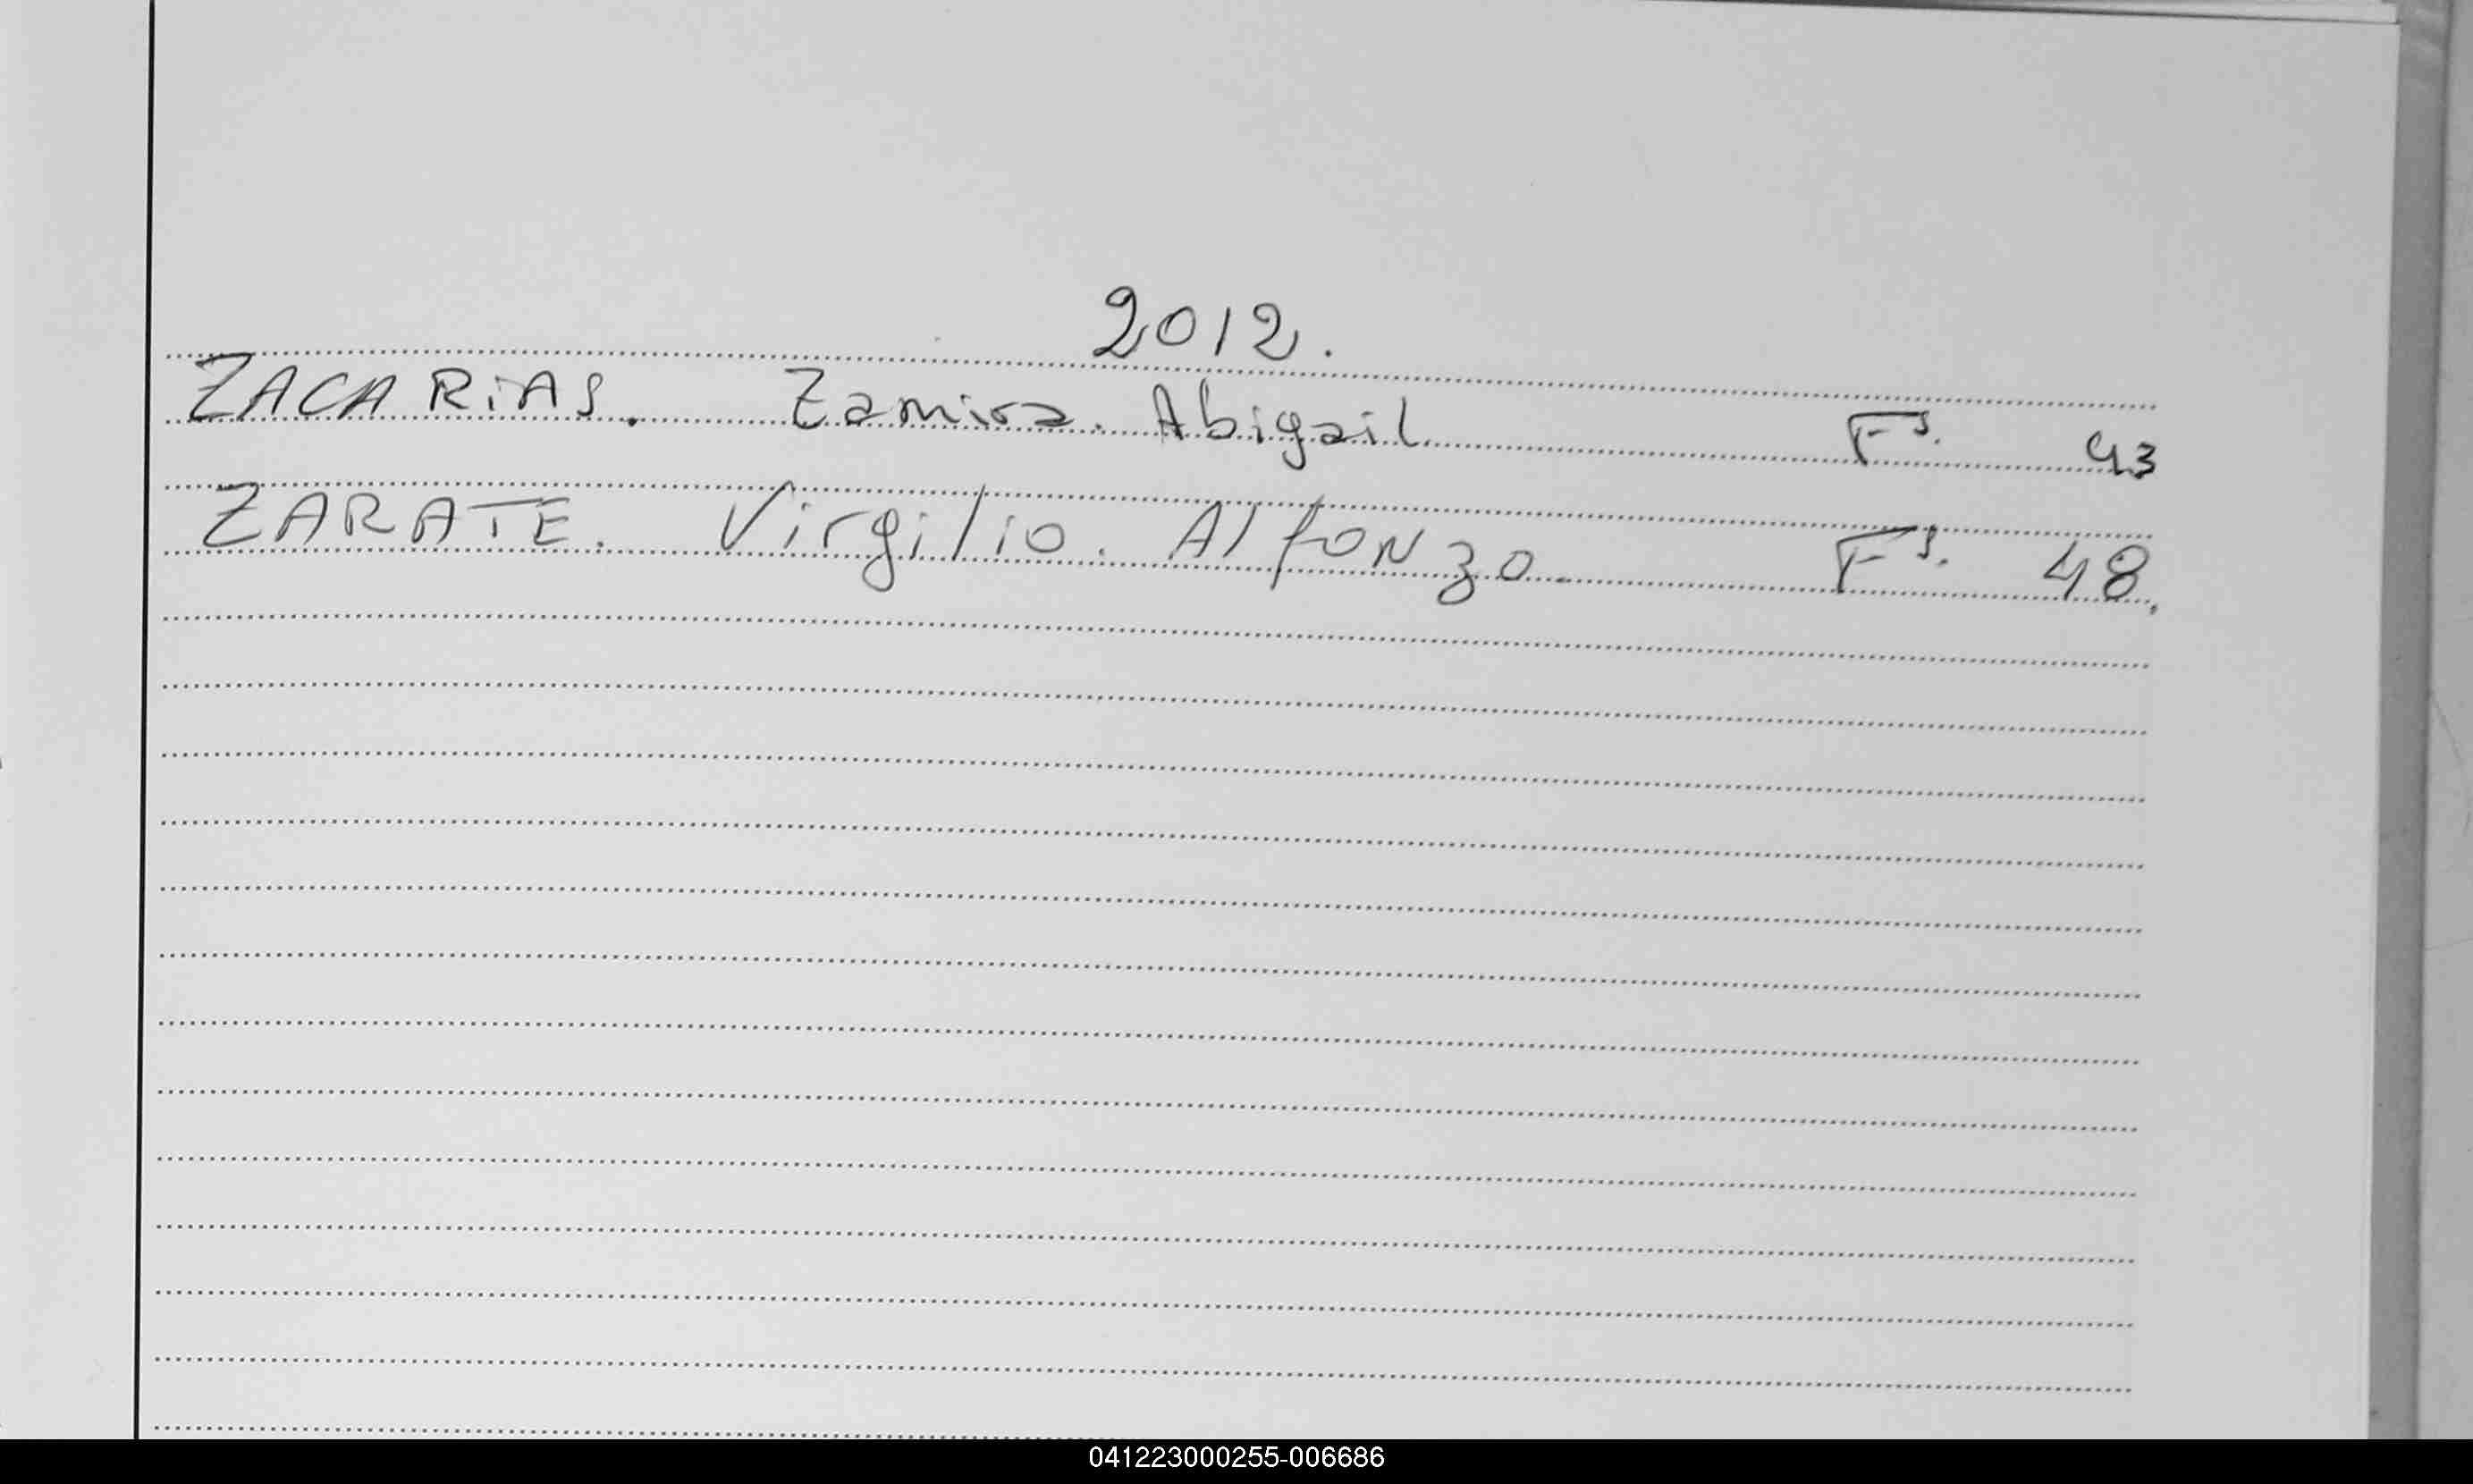 2012.
ZACARiAS. Zamira. Abigail Fs. 43
ZARATE. Virgilio. AlfoNzo Fs. 48.
041223000255-006686